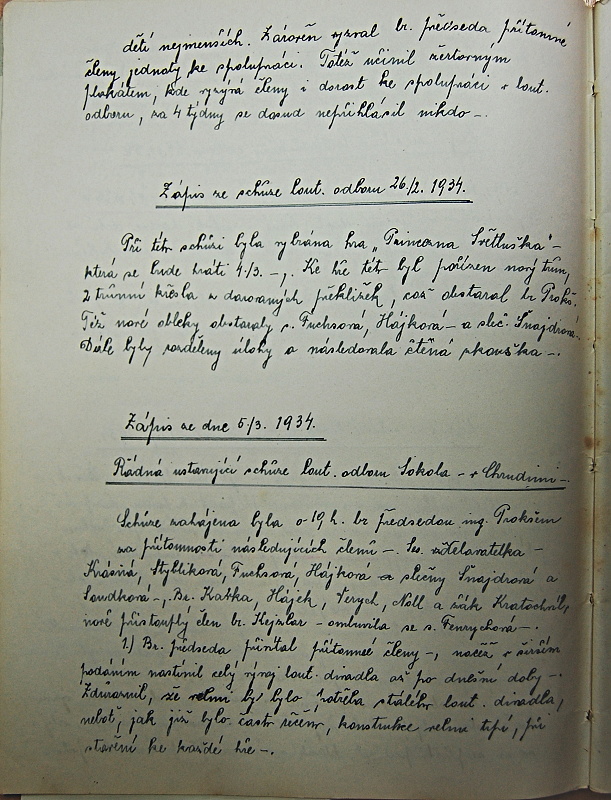 dětí nejmenších. Zároveň vyzval br. předseda přítomné
členy jednoty ke spolupráci. Totéž učinil žertovným
plakátem, kde vyzývá členy i dorost ke spolupráci v lout.
odboru, za 4 týdny se dosud nepřihlásil nikdo -.
Zápis ze schůze lout. odboru 26/2. 1934.
Při této schůzi byla vybrána hra „Princezna Světluška" -
která se bude hráti 4/3. -, Ke hře této byl pořízen nový trůn,
2 trůnní křesla z darovaných překližek, což obstaral br Prokš.
Též nové obleky obstaraly s. Fuchsová, Hájková - a sleč. Šnajdrová.
Dále byly rozděleny úlohy a následovala čtená zkouška -.
Zápis ze dne 5/3. 1934.
Řádná ustavující schůze lout. odboru Sokola - v Chrudimi -.
Schůze zahájena byla o 19 h. br předsedou ing. Prokšem
za přítomnosti následujících členů -. Ses. vzdělavatelka -
Krásná, Styblíková, Fuchsová, Hájková a slečny Šnajdrová a
Soudková -, Br. Kafka, Hájek, Verych, Noll a žák Kratochvíl,
nově přistouplý člen br. Kejzlar - omluvila se s. Fenrychová -.
1.) Br. předseda přivítal přítomné členy -, načež v širším
podáním nastínil celý vývoj lout. divadla až po dnešní doby -.
Zdůraznil, že velmi by bylo potřeba stálého lout. divadla,
neboť, jak již bylo často řečeno, konstrukce velmi trpí, při
stavění ke každé hře -.